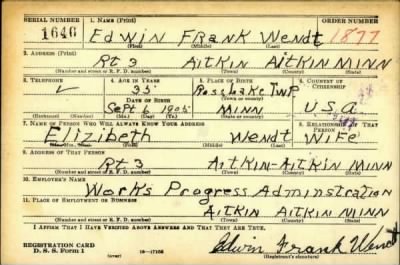 SERIAL NUMBER 1. NAME (Print) ORDER NUMBER
1646 Edwin Frank Wendt 1877
(First) (Middle) (Last)
2. ADDRESS (Print)
Rt 3 Aitkin Aitkin Minn
(Number and street or R. F. D. number) (Town) (County) (State)
3. TELEPHONE 4. AGE IN YEARS 5. PLACE OF BIRTH 6. COUNTRY OF CITIZENSHIP
35 Ross Lake Twp
DATE OF BIRTH (Town or county)
Sept 6 1905 Minn U.S.A
(Exchange) (Number) (Mo.) (Day) (Yr.) (State or country)
7. NAME OF PERSON WHO WILL ALWAYS KNOW YOUR ADDRESS 8. RELATIONSHIP OF THAT PERSON
Elizibeth Wendt Wife
(Mr., Mrs., Miss) (First) (Middle) (Last)
9. ADDRESS OF THAT PERSON
Rt 3 Aitkin-Aitkin Minn
(Number and street or R. F. D. number) (Town) (County) (State)
10. EMPLOYER'S NAME
Works Progress Adminstration
11. PLACE OF EMPLOYMENT OR BUSINESS
Aitkin Aitkin Minn
(Number and street or R. F. D. number) (Town) (County) (State)
I AFFIRM THAT I HAVE VERIFIED ABOVE ANSWERS AND THAT THEY ARE TRUE.
REGISTRATION CARD
D. S. S. Form 1 (over) Edwin Frank Wendt
(Registrant's signature)